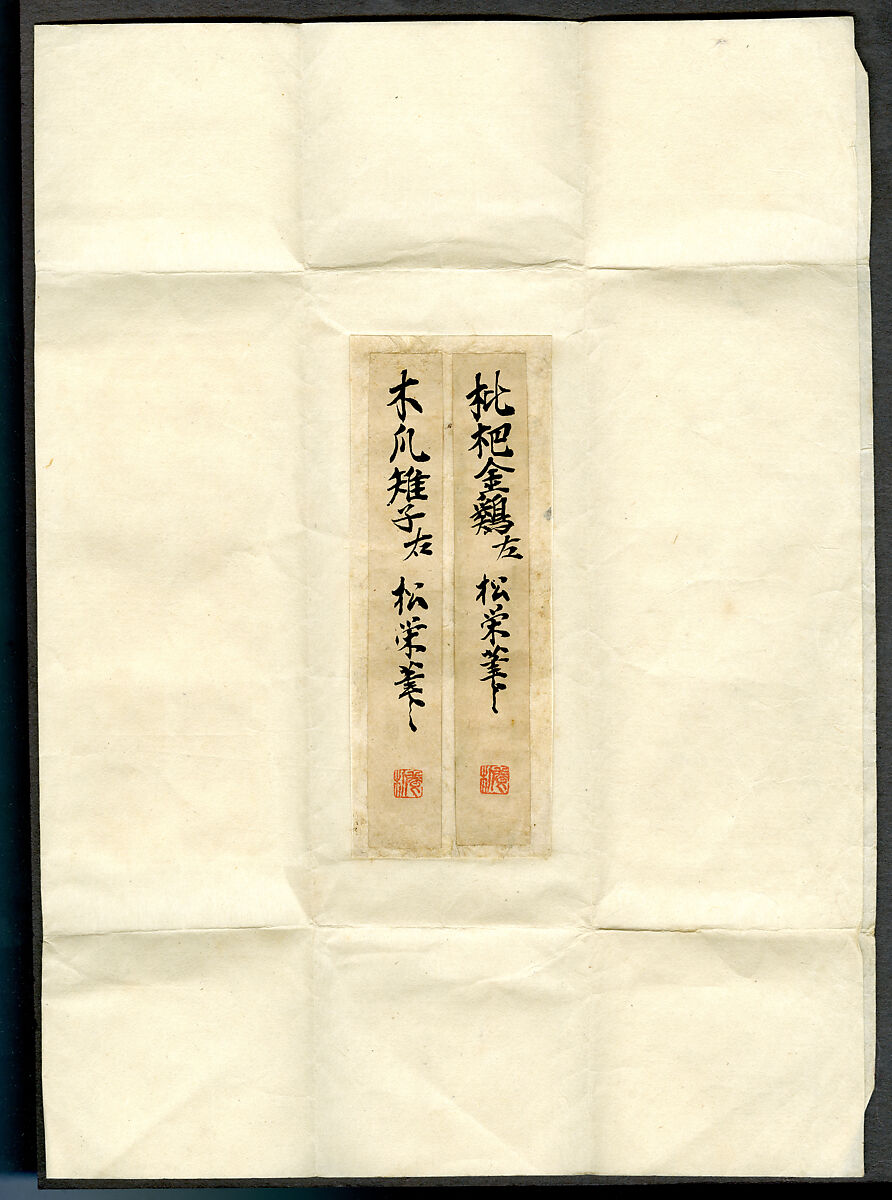 枇杷金鷄左 松栄筆
木瓜雉子右 松栄筆